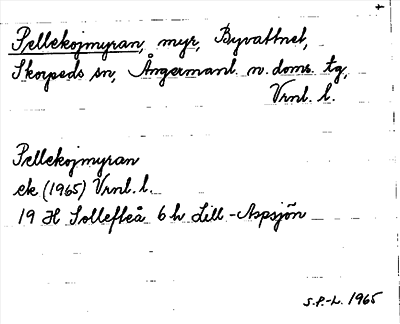 Pellekojmyran, myr, Byvattnet,
Skorpeds sn, Ångermanl. n. doms. tg,
Vrnl. l.
Pellekojmyran
ek (1965) Vrnl. l.
19 H Sollefteå 6 h Lill-Aspsjön
S.P.-L. 1965